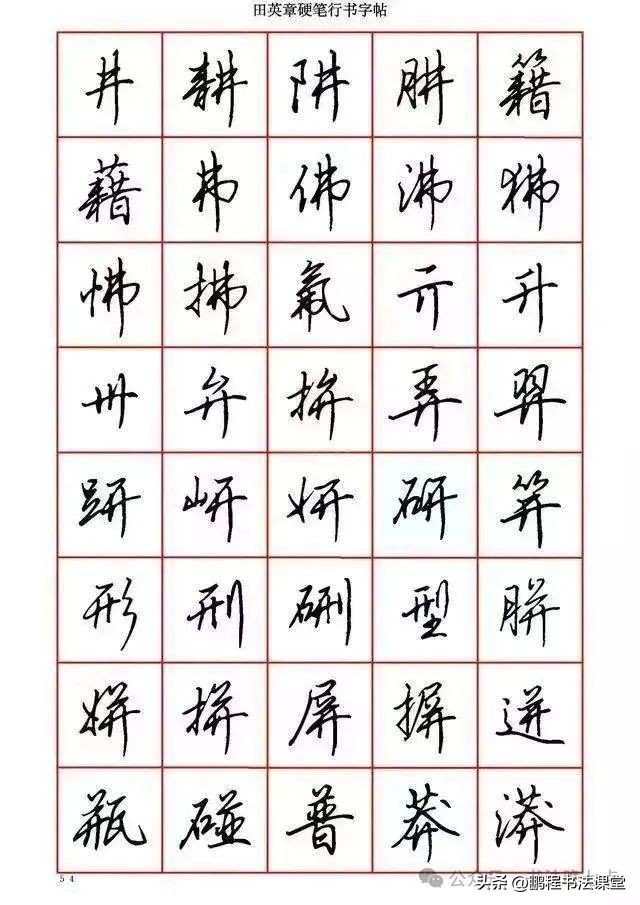 田英章硬笔行书字帖
井 耕 阱 肼 籍
藉 弗 佛 沸 狒
怫 拂 氟 亓 升
卅 弁 拚 弄 羿
趼 岍 妍 研 笄
形 刑 硎 型 胼
姘 拼 屏 摒 迸
瓶 碰 普 莽 漭
54
头条@鹏程书法课堂